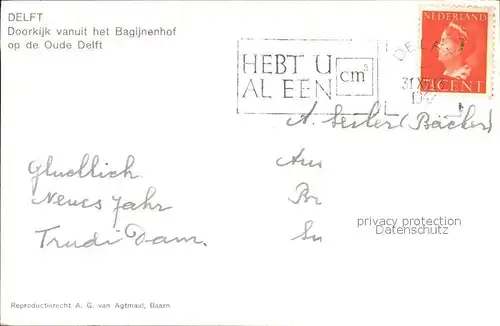 DELFT
Doorkijk vanuit het Bagijnenhof
op de Oude Delft
HEBT U
AL EEN
cm³
DELFT
NEDERLAND
CENT
A. (Bäcker)
Glücklich
Neues Jahr
Trudi Dam.
Am
Br
privacy protection
Datenschutz
Reproductierecht A. G. van Agtmaal, Baarn